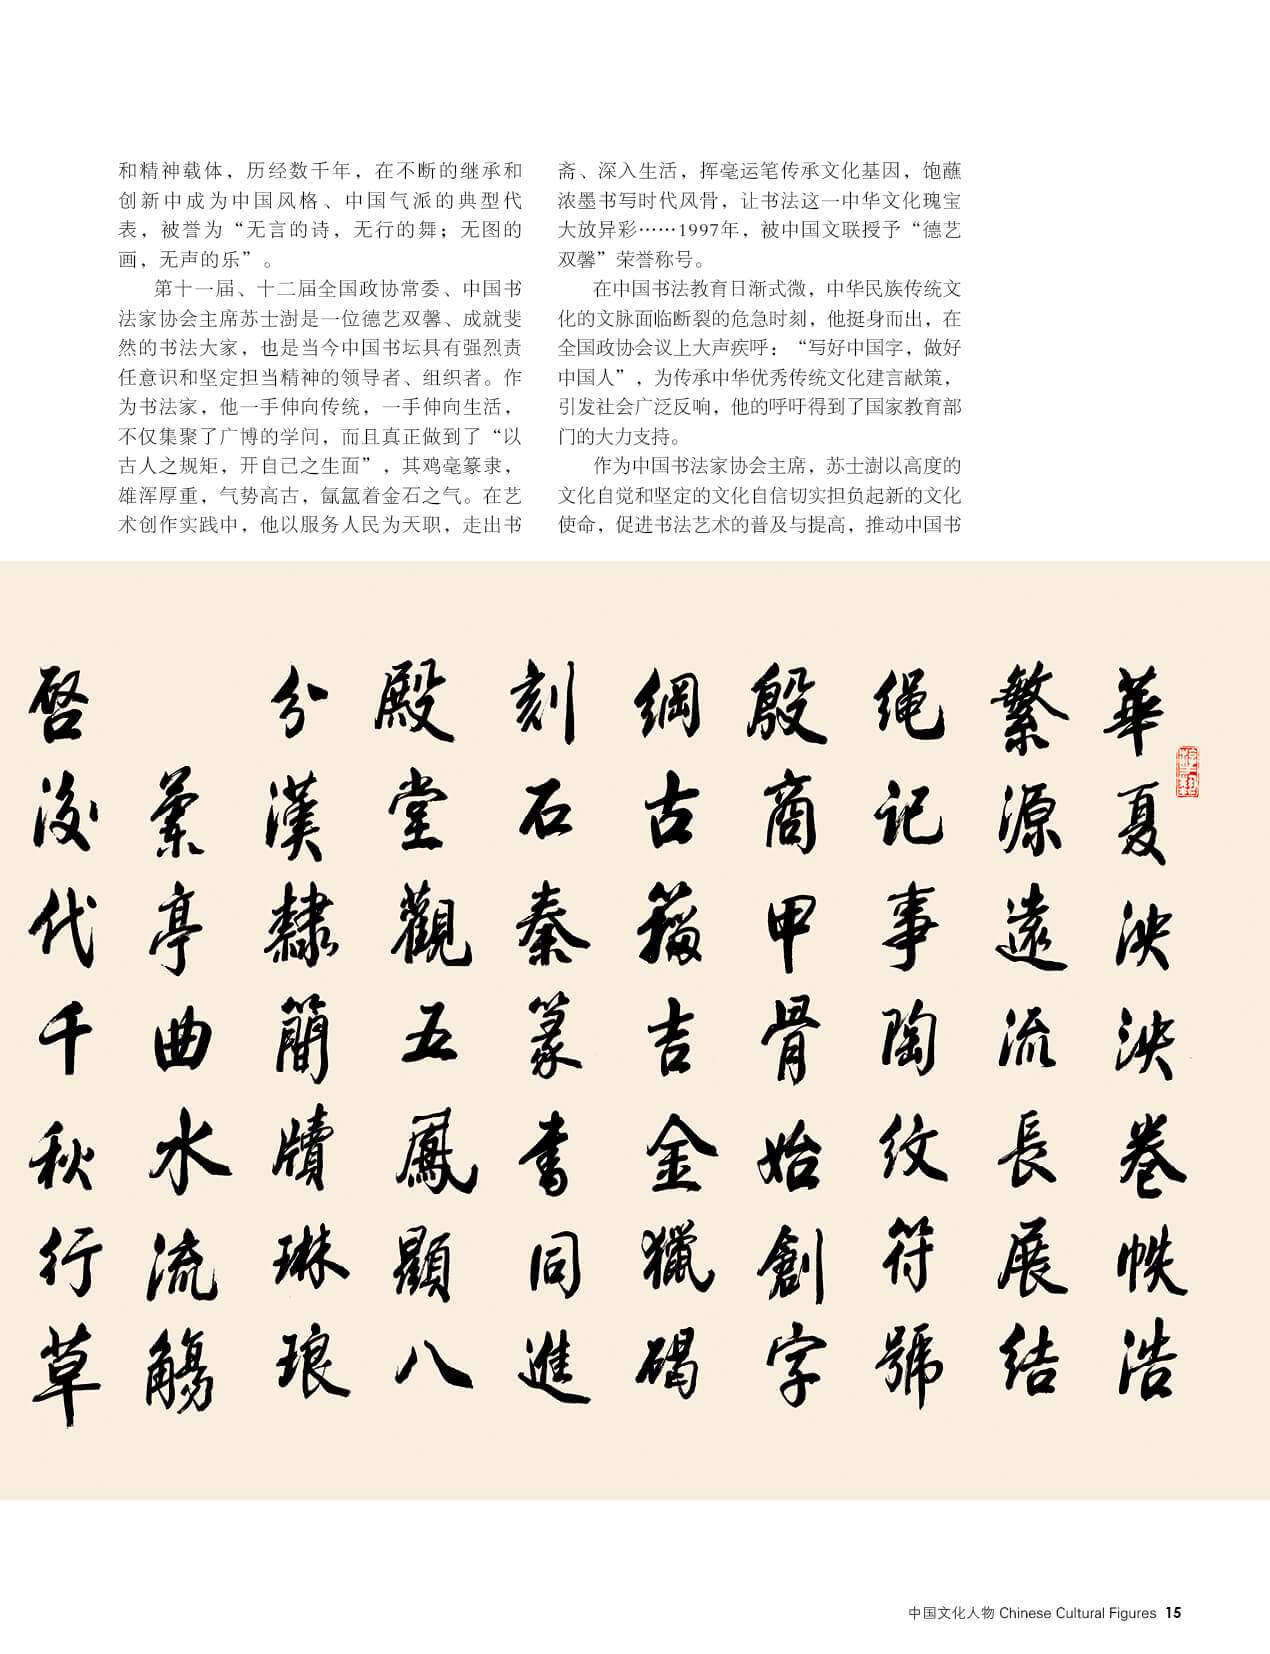 和精神载体，历经数千年，在不断的继承和
创新中成为中国风格、中国气派的典型代
表，被誉为“无言的诗，无行的舞；无图的
画，无声的乐”。
第十一届、十二届全国政协常委、中国书
法家协会主席苏士澍是一位德艺双馨、成就斐
然的书法大家，也是当今中国书坛具有强烈责
任意识和坚定担当精神的领导者、组织者。作
为书法家，他一手伸向传统，一手伸向生活，
不仅集聚了广博的学问，而且真正做到了“以
古人之规矩，开自己之生面”，其鸡毫篆隶，
雄浑厚重，气势高古，氤氲着金石之气。在艺
术创作实践中，他以服务人民为天职，走出书
斋、深入生活，挥毫运笔传承文化基因，饱蘸
浓墨书写时代风骨，让书法这一中华文化瑰宝
大放异彩……1997年，被中国文联授予“德艺
双馨”荣誉称号。
在中国书法教育日渐式微，中华民族传统文
化的文脉面临断裂的危急时刻，他挺身而出，在
全国政协会议上大声疾呼：“写好中国字，做好
中国人”，为传承中华优秀传统文化建言献策，
引发社会广泛反响，他的呼吁得到了国家教育部
门的大力支持。
作为中国书法家协会主席，苏士澍以高度的
文化自觉和坚定的文化自信切实担负起新的文化
使命，促进书法艺术的普及与提高，推动中国书
華夏泱泱卷帙浩
繁源遠流長展结
绳记事陶纹符號
殷商甲骨始創字
綱古籀吉金獵碣
刻石秦篆書同進
殿堂觀五鳳顯八
分漢隸簡牘琳琅
蘭亭曲水流觴
啓後代千秋行草
中国文化人物 Chinese Cultural Figures 15